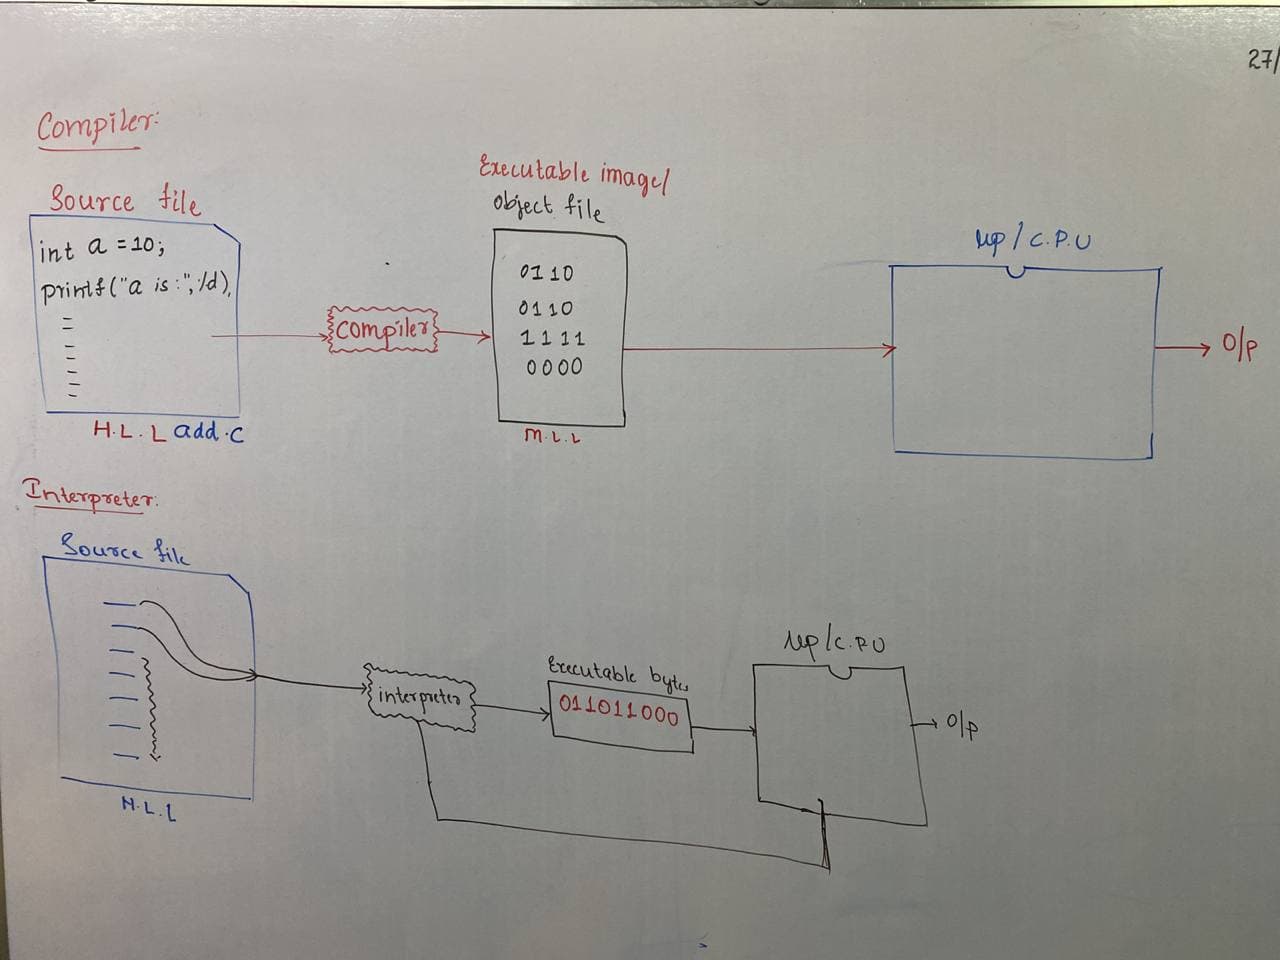 27/
Compiler:
Source file
int a =10;
printf("a is :",%d),
H.L.L add.c
compiler
Executable image/
object file
0110
0110
1111
0000
M.L.L
μp/C.P.U
O/P
Interpreter:
Source file
H.L.L
interpreter
Executable bytes
011011000
μp/C.P.U
O/P